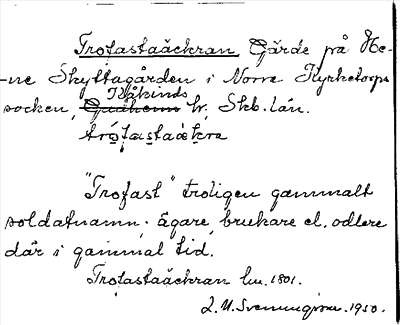 Trofastaäckran, Gärde på He-
-ne Skyttagården i Norra Kyrketorps
Kåkinds
socken, Gudhems hr. Skb. län.
"Trofast" troligen gammalt
soldatnamn. ägare, brukare el. odlare
där i gammal tid.
Trofastaäckran lm. 1801.
1950.